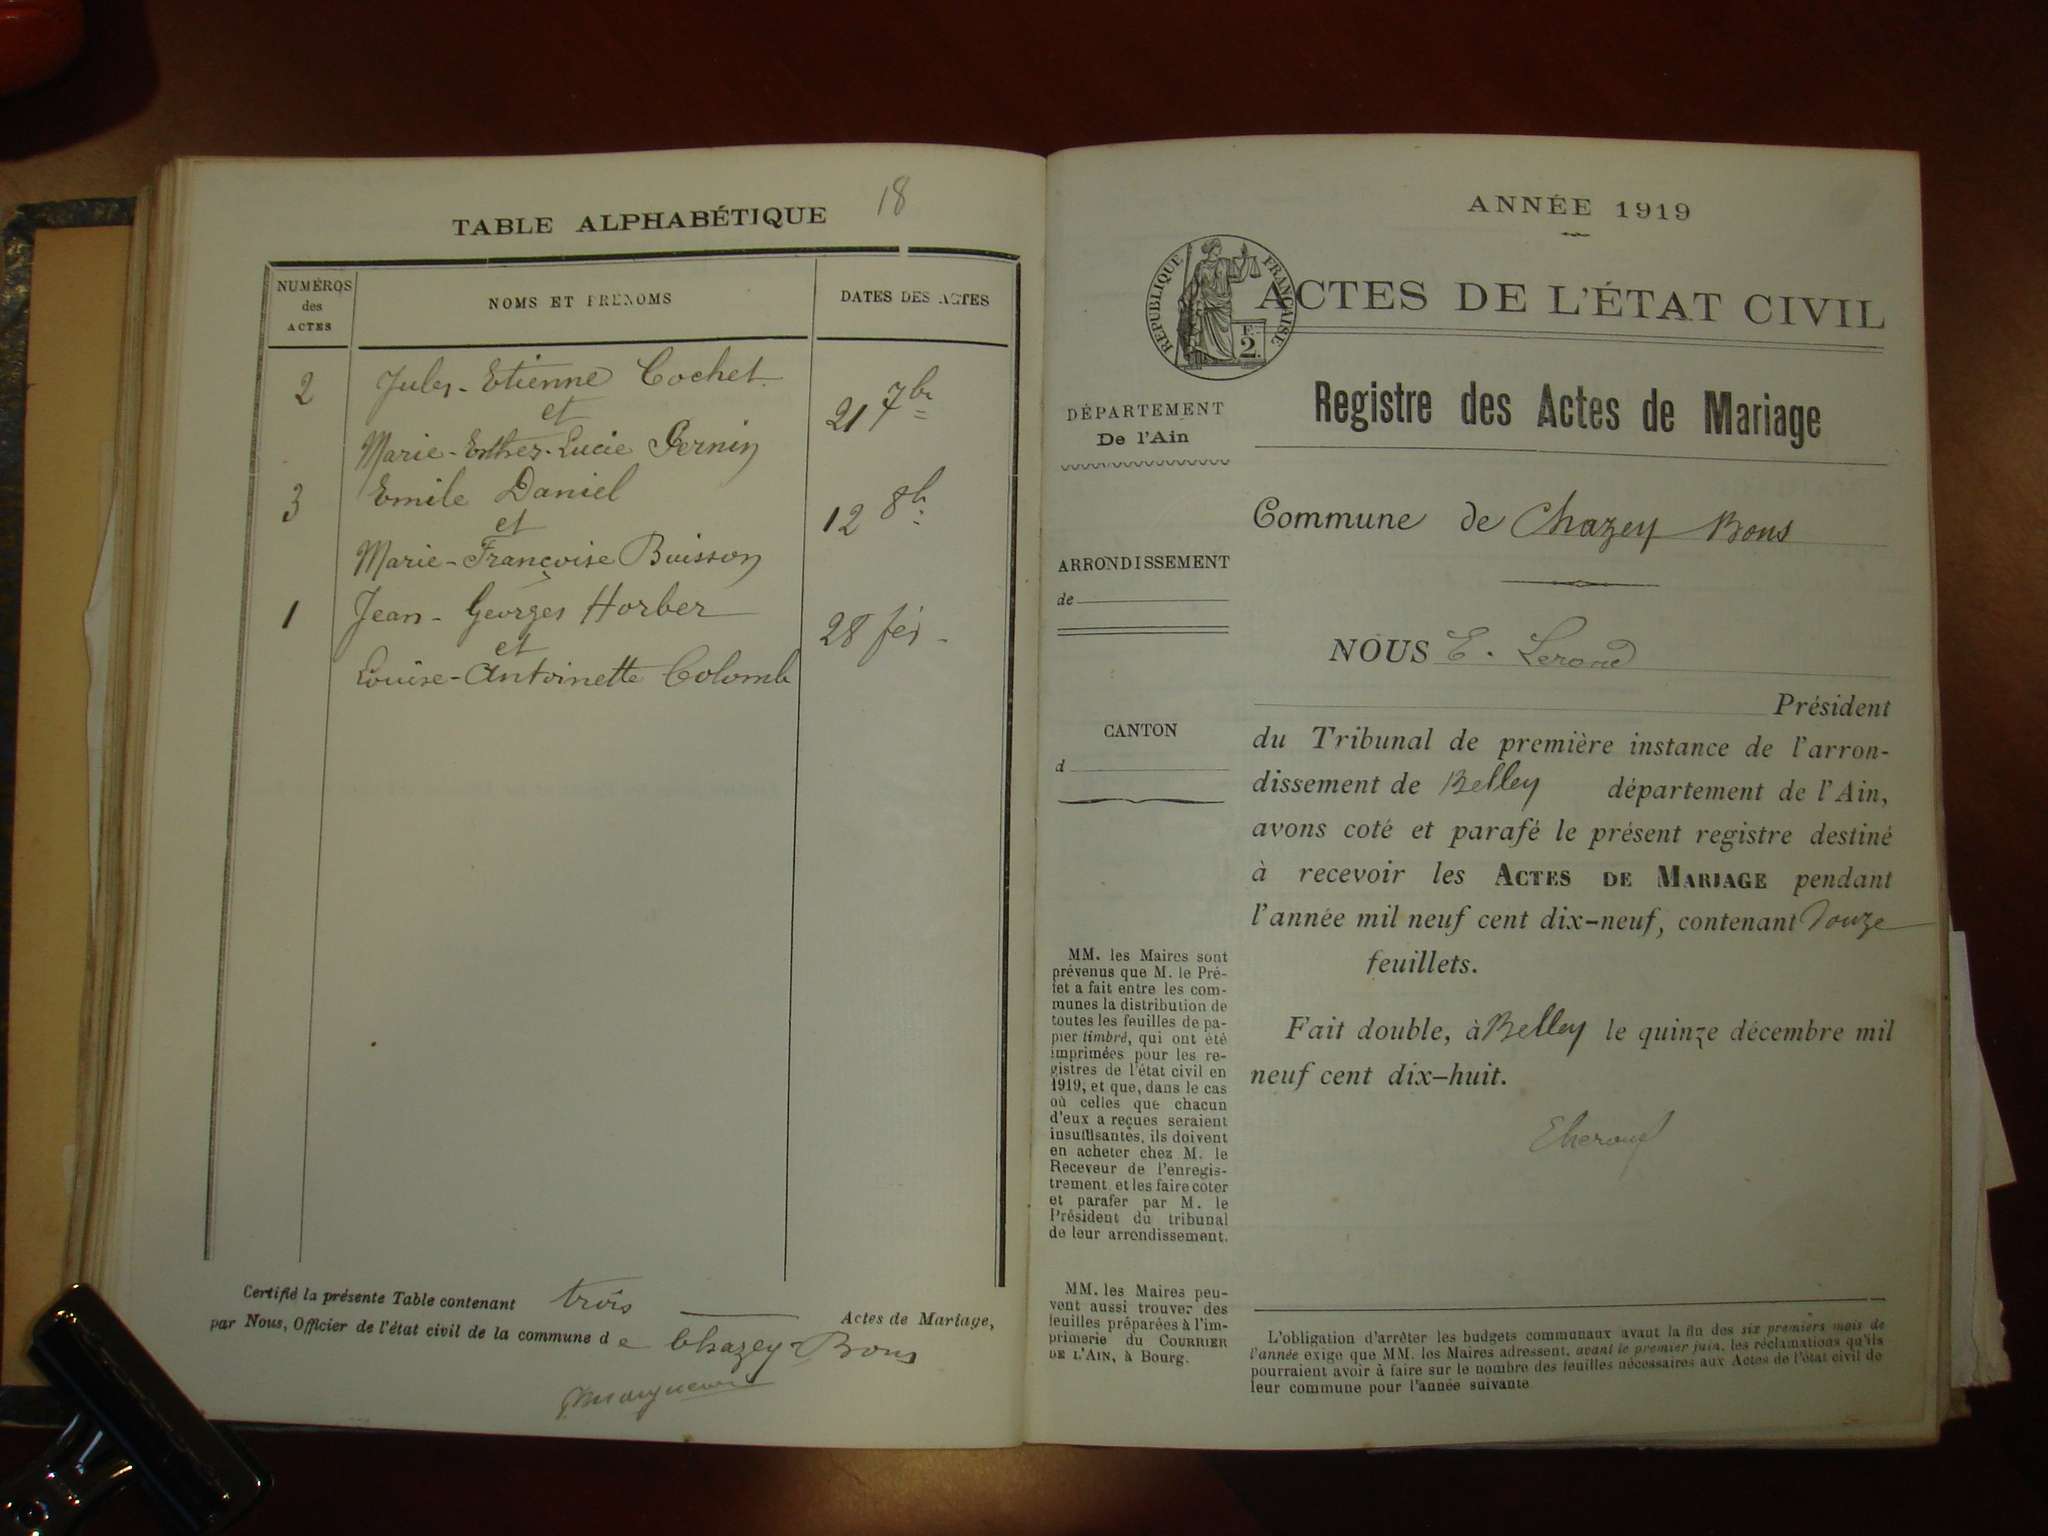 18
TABLE ALPHABÉTIQUE
NUMÉROS
des
ACTES
NOMS ET PRÉNOMS
DATES DES ACTES
2
Jules-Etienne Cochet
et
21 7bre
Marie-Esther-Lucie Pernin
3
Emile Daniel
et
12 8b.
Marie-Françoise Buisson
1
Jean-Georges Horber
et
28 fév
Louise-Antoinette Colomb
Certifié la présente Table contenant trois Actes de Mariage,
par Nous, Officier de l'état civil de la commune de Chazey-Bons
ANNÉE 1919
RÉPUBLIQUE FRANÇAISE
F.
2.
ACTES DE L'ÉTAT CIVIL
Registre des Actes de Mariage
DÉPARTEMENT
De l'Ain
Commune de Chazey Bons
ARRONDISSEMENT
de
NOUS E. Lerond
Président
CANTON
d
du Tribunal de première instance de l'arron-
dissement de Belley département de l'Ain,
avons coté et parafé le présent registre destiné
à recevoir les ACTES DE MARIAGE pendant
l'année mil neuf cent dix-neuf, contenant douze
feuillets.
Fait double, à Belley le quinze décembre mil
neuf cent dix-huit.
MM. les Maires sont
prévenus que M. le Pré-
fet a fait entre les com-
munes la distribution de
toutes les feuilles de pa-
pier timbré, qui ont été
imprimées pour les re-
gistres de l'état civil en
1919, et que, dans le cas
où celles que chacun
d'eux a reçues seraient
insuffisantes, ils doivent
en acheter chez M. le
Receveur de l'enregis-
trement et les faire coter
et parafer par M. le
Président du tribunal
de leur arrondissement.
MM. les Maires peu-
vent aussi trouver des
feuilles préparées à l'im-
primerie du COURRIER
DE L'AIN, à Bourg.
L'obligation d'arrêter les budgets communaux avant la fin des six premiers mois de
l'année exige que MM. les Maires adressent, avant le premier juin, les réclamations qu'ils
pourraient avoir à faire sur le nombre des feuilles nécessaires aux Actes de l'état civil de
leur commune pour l'année suivante.